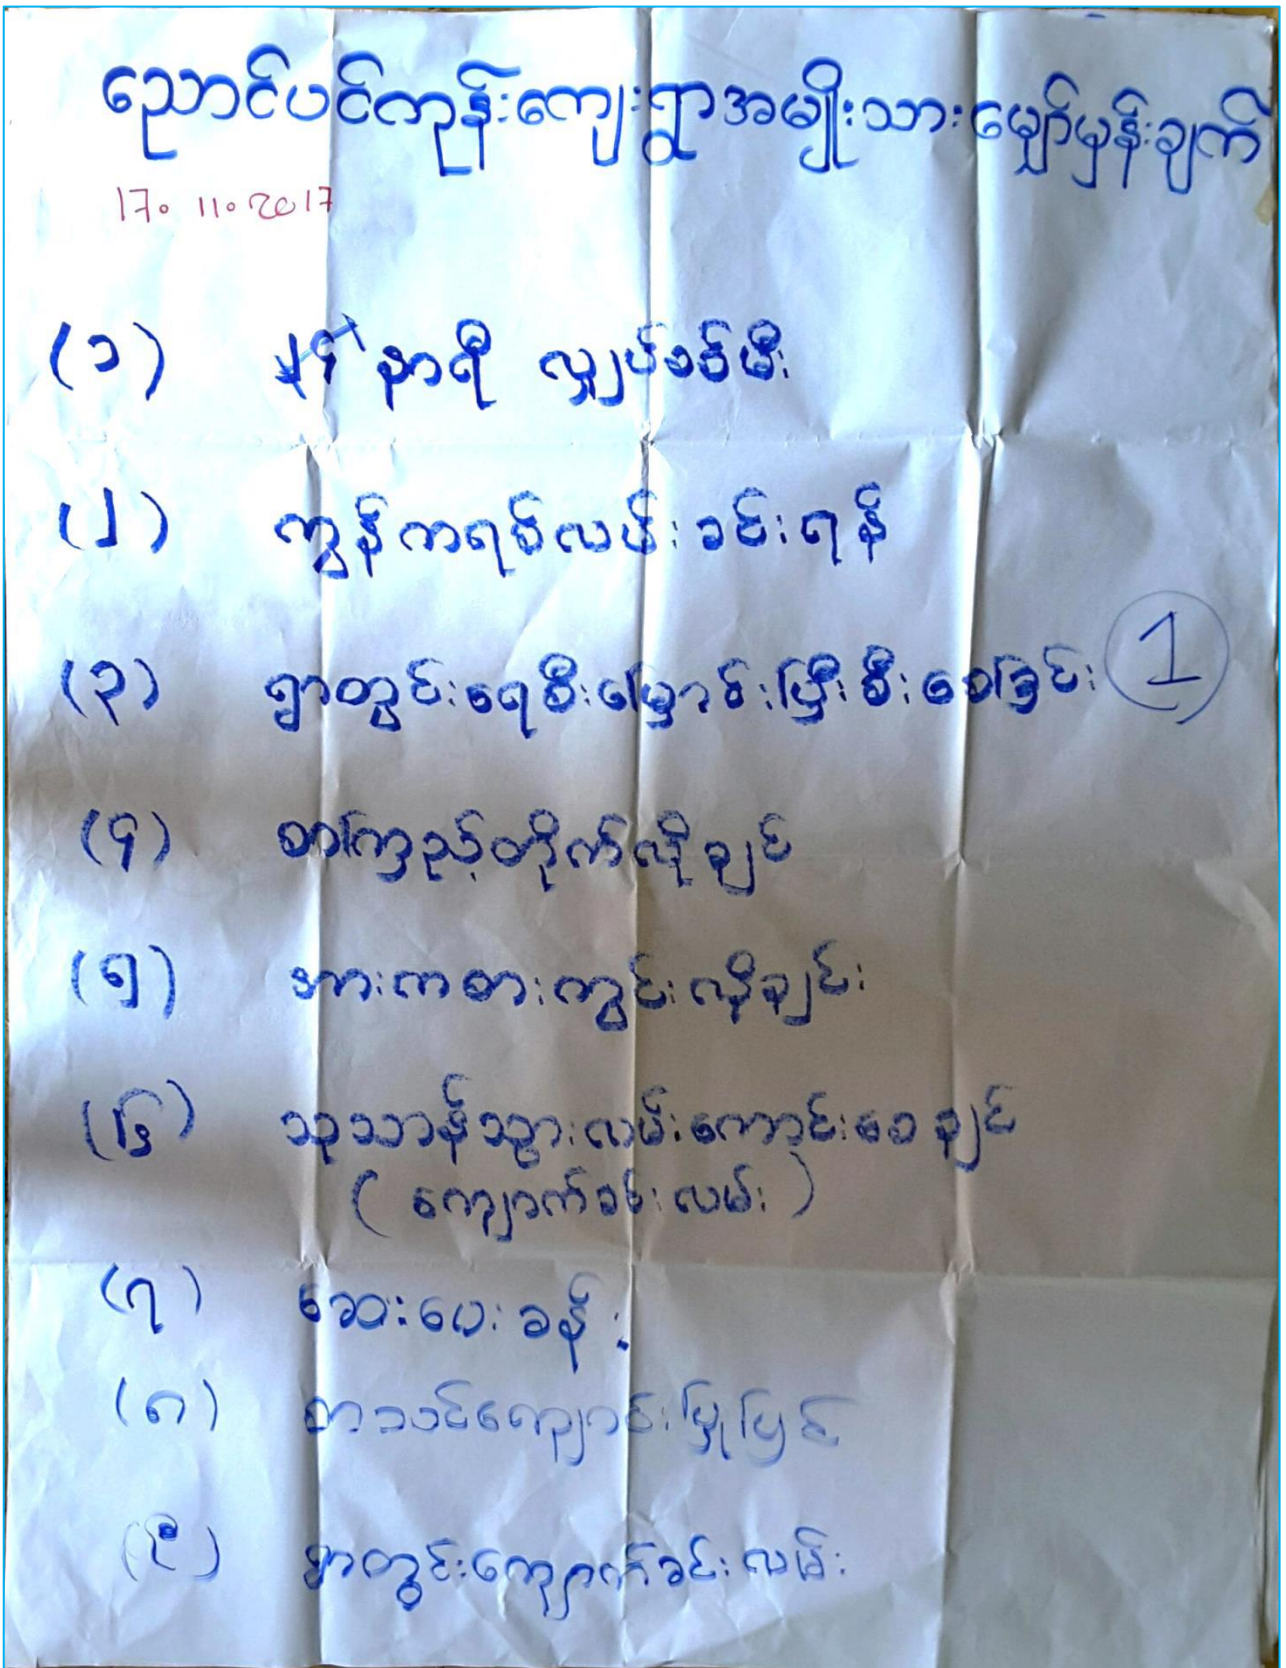 ညောင်ပင်ကုန်းကျေးရွာအမျိုးသားမျှော်မှန်းချက်
17.11.2017
(၁) ၂၄ နာရီ လျှပ်စစ်မီး
(၂) ကွန်ကရစ်လမ်းခင်းရန်
(၃) ရွာတွင်းရေစီးမြောင်းပြီးစီးစေခြင်း 1
(၄) စာကြည့်တိုက်လိုချင်
(၅) အားကစားကွင်းလိုချင်း
(၆) သုသာန်သွားလမ်းကောင်းစေချင်
(ကျောက်ခင်းလမ်း)
(၇) ဆေးပေးခန်း
(၈) စာသင်ကျောင်းပြုပြင်
(၉) ရွာတွင်းကျောက်ခင်းလမ်း